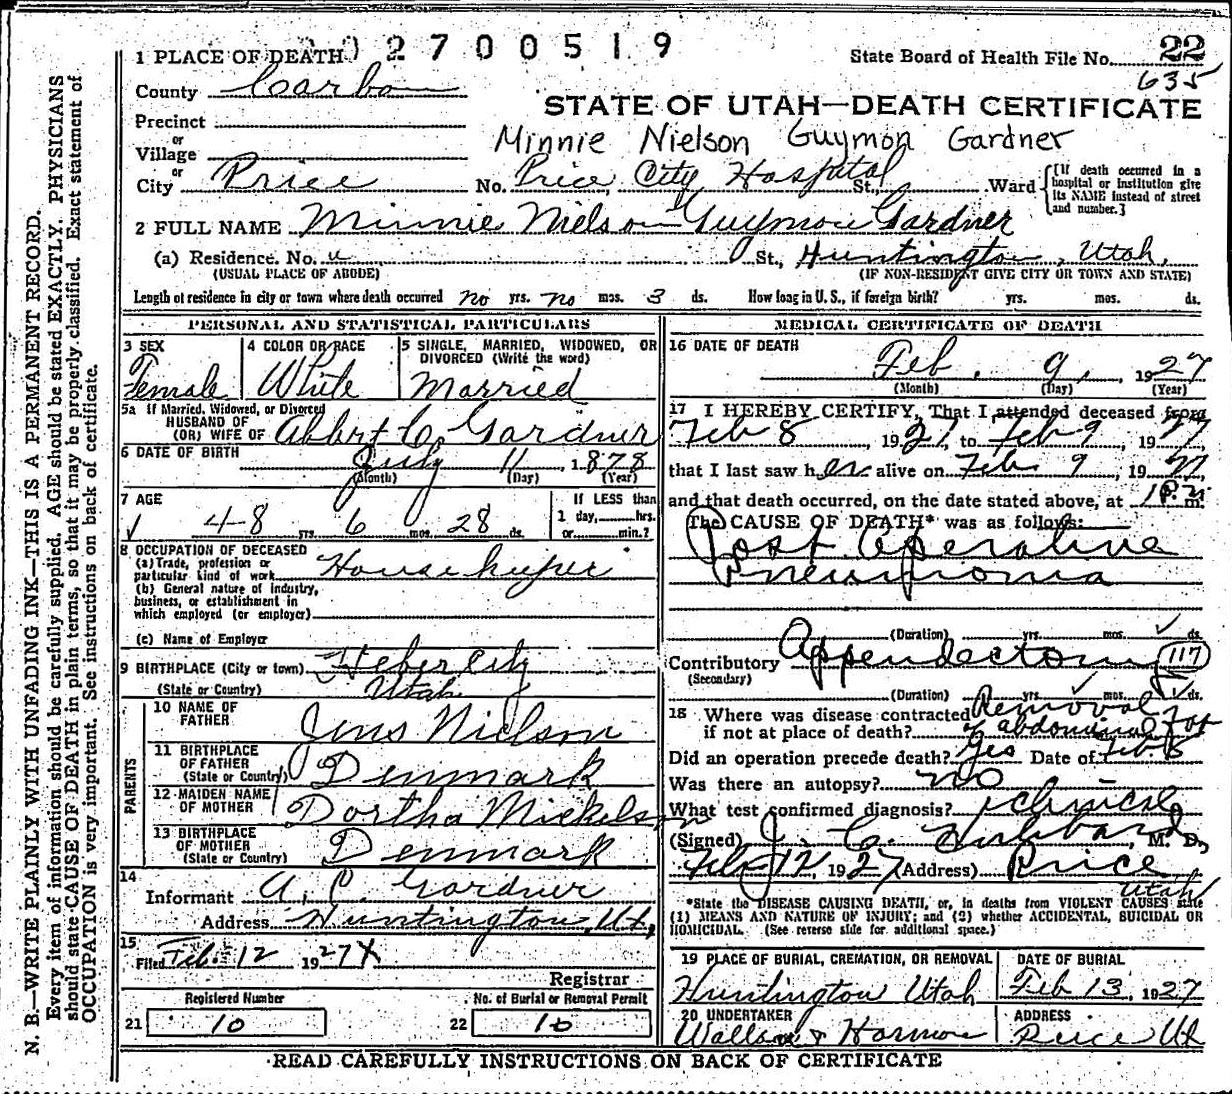 2700519
1 PLACE OF DEATH
State Board of Health File No. 22
635
County Carbon
STATE OF UTAH—DEATH CERTIFICATE
Precinct
or
Village
Minnie Nielson Guymon Gardner
or
City Price No. Price City Hospital St., Ward
[If death occurred in a
hospital or institution give
its NAME instead of street
and number.]
2 FULL NAME Minnie Nielson Guymon Gardner
(a) Residence. No. St., Huntington, Utah.
(USUAL PLACE OF ABODE) (IF NON-RESIDENT GIVE CITY OR TOWN AND STATE)
Length of residence in city or town where death occurred no yrs. no mos. 3 ds. How long in U. S., if foreign birth? yrs. mos. ds.
PERSONAL AND STATISTICAL PARTICULARS
3 SEX
Female
4 COLOR OR RACE
White
5 SINGLE, MARRIED, WIDOWED, OR
DIVORCED (Write the word)
Married
5a If Married, Widowed, or Divorced
HUSBAND OF
(OR) WIFE OF Albert C. Gardner
6 DATE OF BIRTH
July 11, 1878
(Month) (Day) (Year)
7 AGE
48 yrs. 6 mos. 28 ds.
If LESS than
1 day, hrs.
or min.?
8 OCCUPATION OF DECEASED
(a) Trade, profession or
particular kind of work Housekeeper
(b) General nature of industry,
business, or establishment in
which employed (or employer)
(c) Name of Employer
9 BIRTHPLACE (City or town) Heber City
(State or Country) Utah
PARENTS
10 NAME OF
FATHER Jens Nielson
11 BIRTHPLACE
OF FATHER
(State or Country) Denmark
12 MAIDEN NAME
OF MOTHER Dortha Mickelson
13 BIRTHPLACE
OF MOTHER
(State or Country) Denmark
14
Informant A. C. Gardner
Address Huntington, Ut.
15
Filed Feb. 12 1927
Registrar
Registered Number
21 10
No. of Burial or Removal Permit
22 10
MEDICAL CERTIFICATE OF DEATH
16 DATE OF DEATH
Feb. 9, 1927
(Month) (Day) (Year)
17 I HEREBY CERTIFY, That I attended deceased from
Feb 8 1927, to Feb 9, 1927
that I last saw her alive on Feb 9, 1927
and that death occurred, on the date stated above, at 1 P. m.
The CAUSE OF DEATH* was as follows:
Post Operative
Pneumonia
(Duration) yrs. mos. ds.
Contributory Appendectomy 117
(Secondary)
(Duration) yrs. mos. ds.
18 Where was disease contracted Removal
if not at place of death? of abdominal
Did an operation precede death? Yes Date of Feb. 8
Was there an autopsy? no
What test confirmed diagnosis? clinical
(Signed) J. C. Hubbard, M. D.
Feb 12, 1927 (Address) Price
Utah
*State the DISEASE CAUSING DEATH, or, in deaths from VIOLENT CAUSES state
(1) MEANS AND NATURE OF INJURY; and (2) whether ACCIDENTAL, SUICIDAL OR
HOMICIDAL. (See reverse side for additional space.)
19 PLACE OF BURIAL, CREMATION, OR REMOVAL
Huntington Utah
DATE OF BURIAL
Feb 13, 1927
20 UNDERTAKER
Wallace & Harmon
ADDRESS
Price Ut
READ CAREFULLY INSTRUCTIONS ON BACK OF CERTIFICATE
N. B.—WRITE PLAINLY WITH UNFADING INK—THIS IS A PERMANENT RECORD.
Every item of information should be carefully supplied. AGE should be stated EXACTLY. PHYSICIANS
should state CAUSE OF DEATH in plain terms, so that it may be properly classified. Exact statement of
OCCUPATION is very important. See instructions on back of certificate.